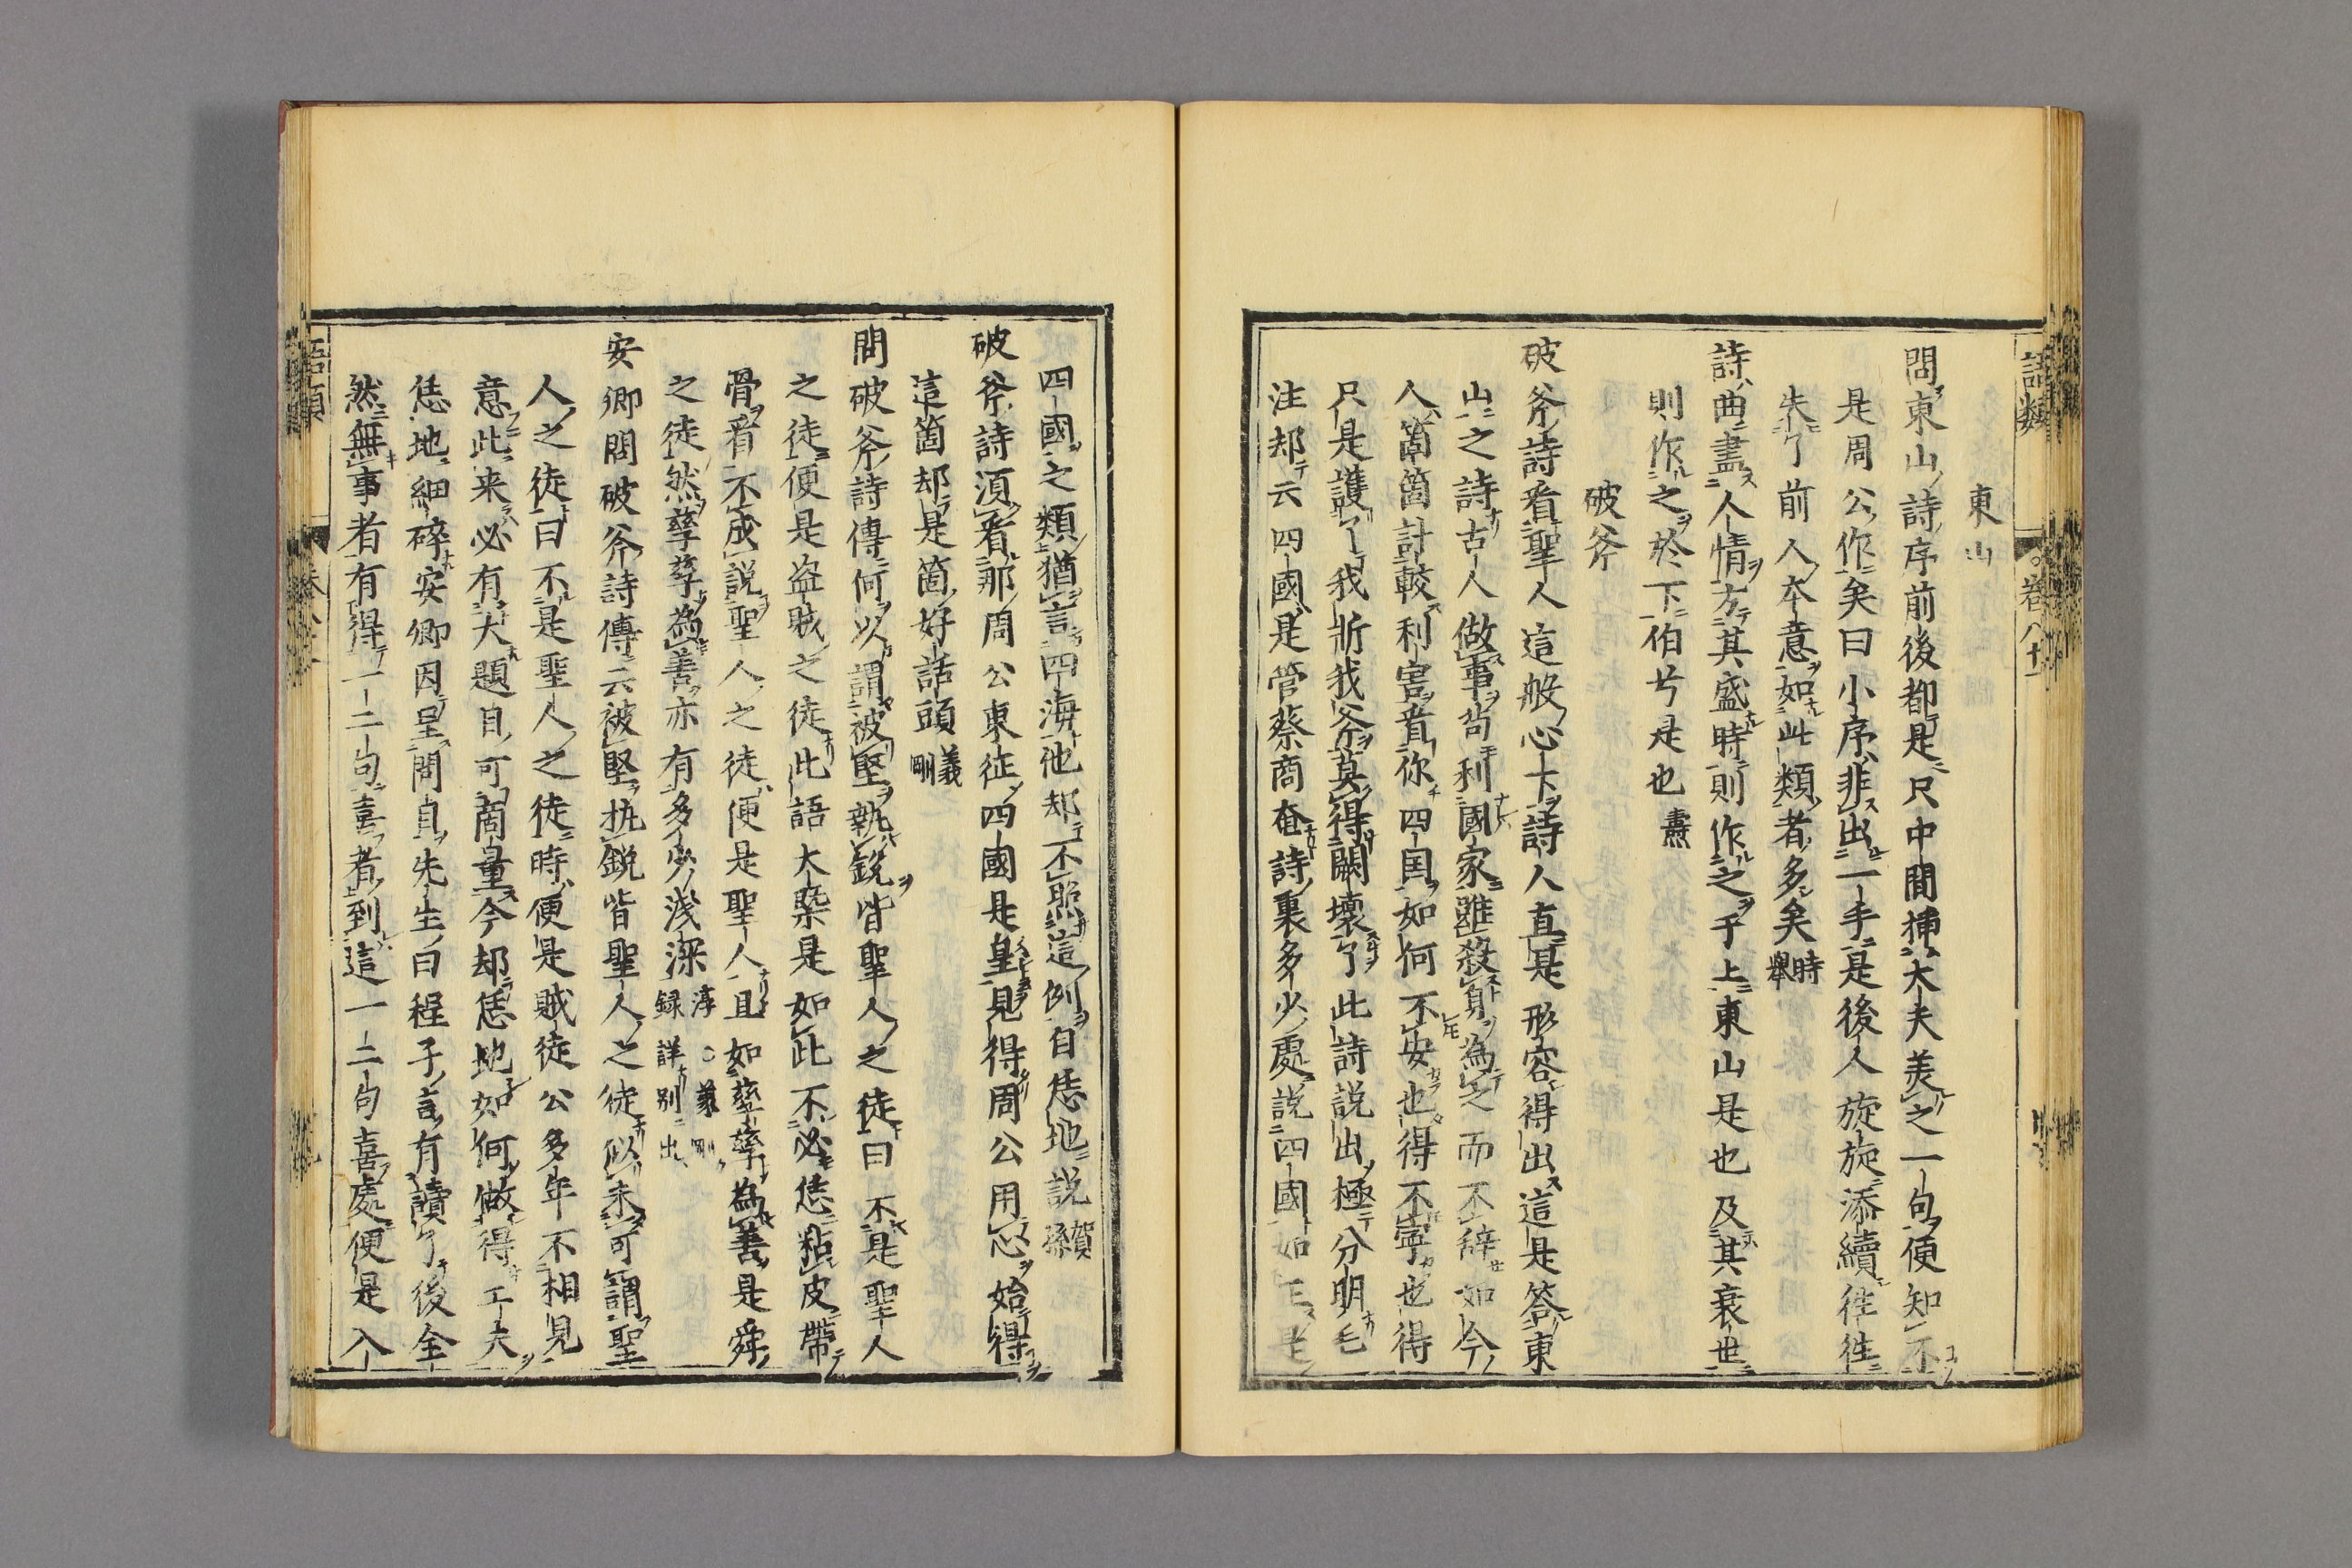 語類
卷八十一
東山
問東山詩序前後都是只中間插大夫美之一句便知不
是周公作矣曰小序非出一手是後人旋旋添續往往
失了前人本意如此類者多矣時舉
詩曲盡人情方其盛時則作之于上東山是也及其衰世
則作之於下伯兮是也燾
破斧
破斧詩看聖人這般心下詩人直是形容得出這是答東
山之詩古人做事苟利國家雖殺身為之而不辭如今
人箇箇計較利害看你四国如何不安也得不寧也得
只是護了我斨我斧莫得闕壞了此詩說出極分明毛
注却云四國是管蔡商奄詩裏多少處說四國如正是
四國之類猶言四海他却不照這例自恁地説賀孫
破斧詩須看那周公東征四國是皇見得周公用心始得
這箇却是箇好話頭義剛
問破斧詩傳何以謂被堅執銳皆聖人之徒曰不是聖人
之徒便是盗賊之徒此語大槩是如此不必恁粘皮帶
骨看不成説聖人之徒便是聖人且如孳孳為善是舜
之徒然孳孳為善亦有多少淺深淳○義剛録詳別出
安卿問破斧詩傳云被堅执銳皆聖人之徒似未可謂聖
人之徒曰不是聖人之徒時便是賊徒公多年不相見
意此来必有大題目可商量今却恁地如何做得工夫
恁地細碎安卿因呈問目先生曰程子言有讀了後全
然無事者有得一二句喜者到這一二句喜處便是入
語類